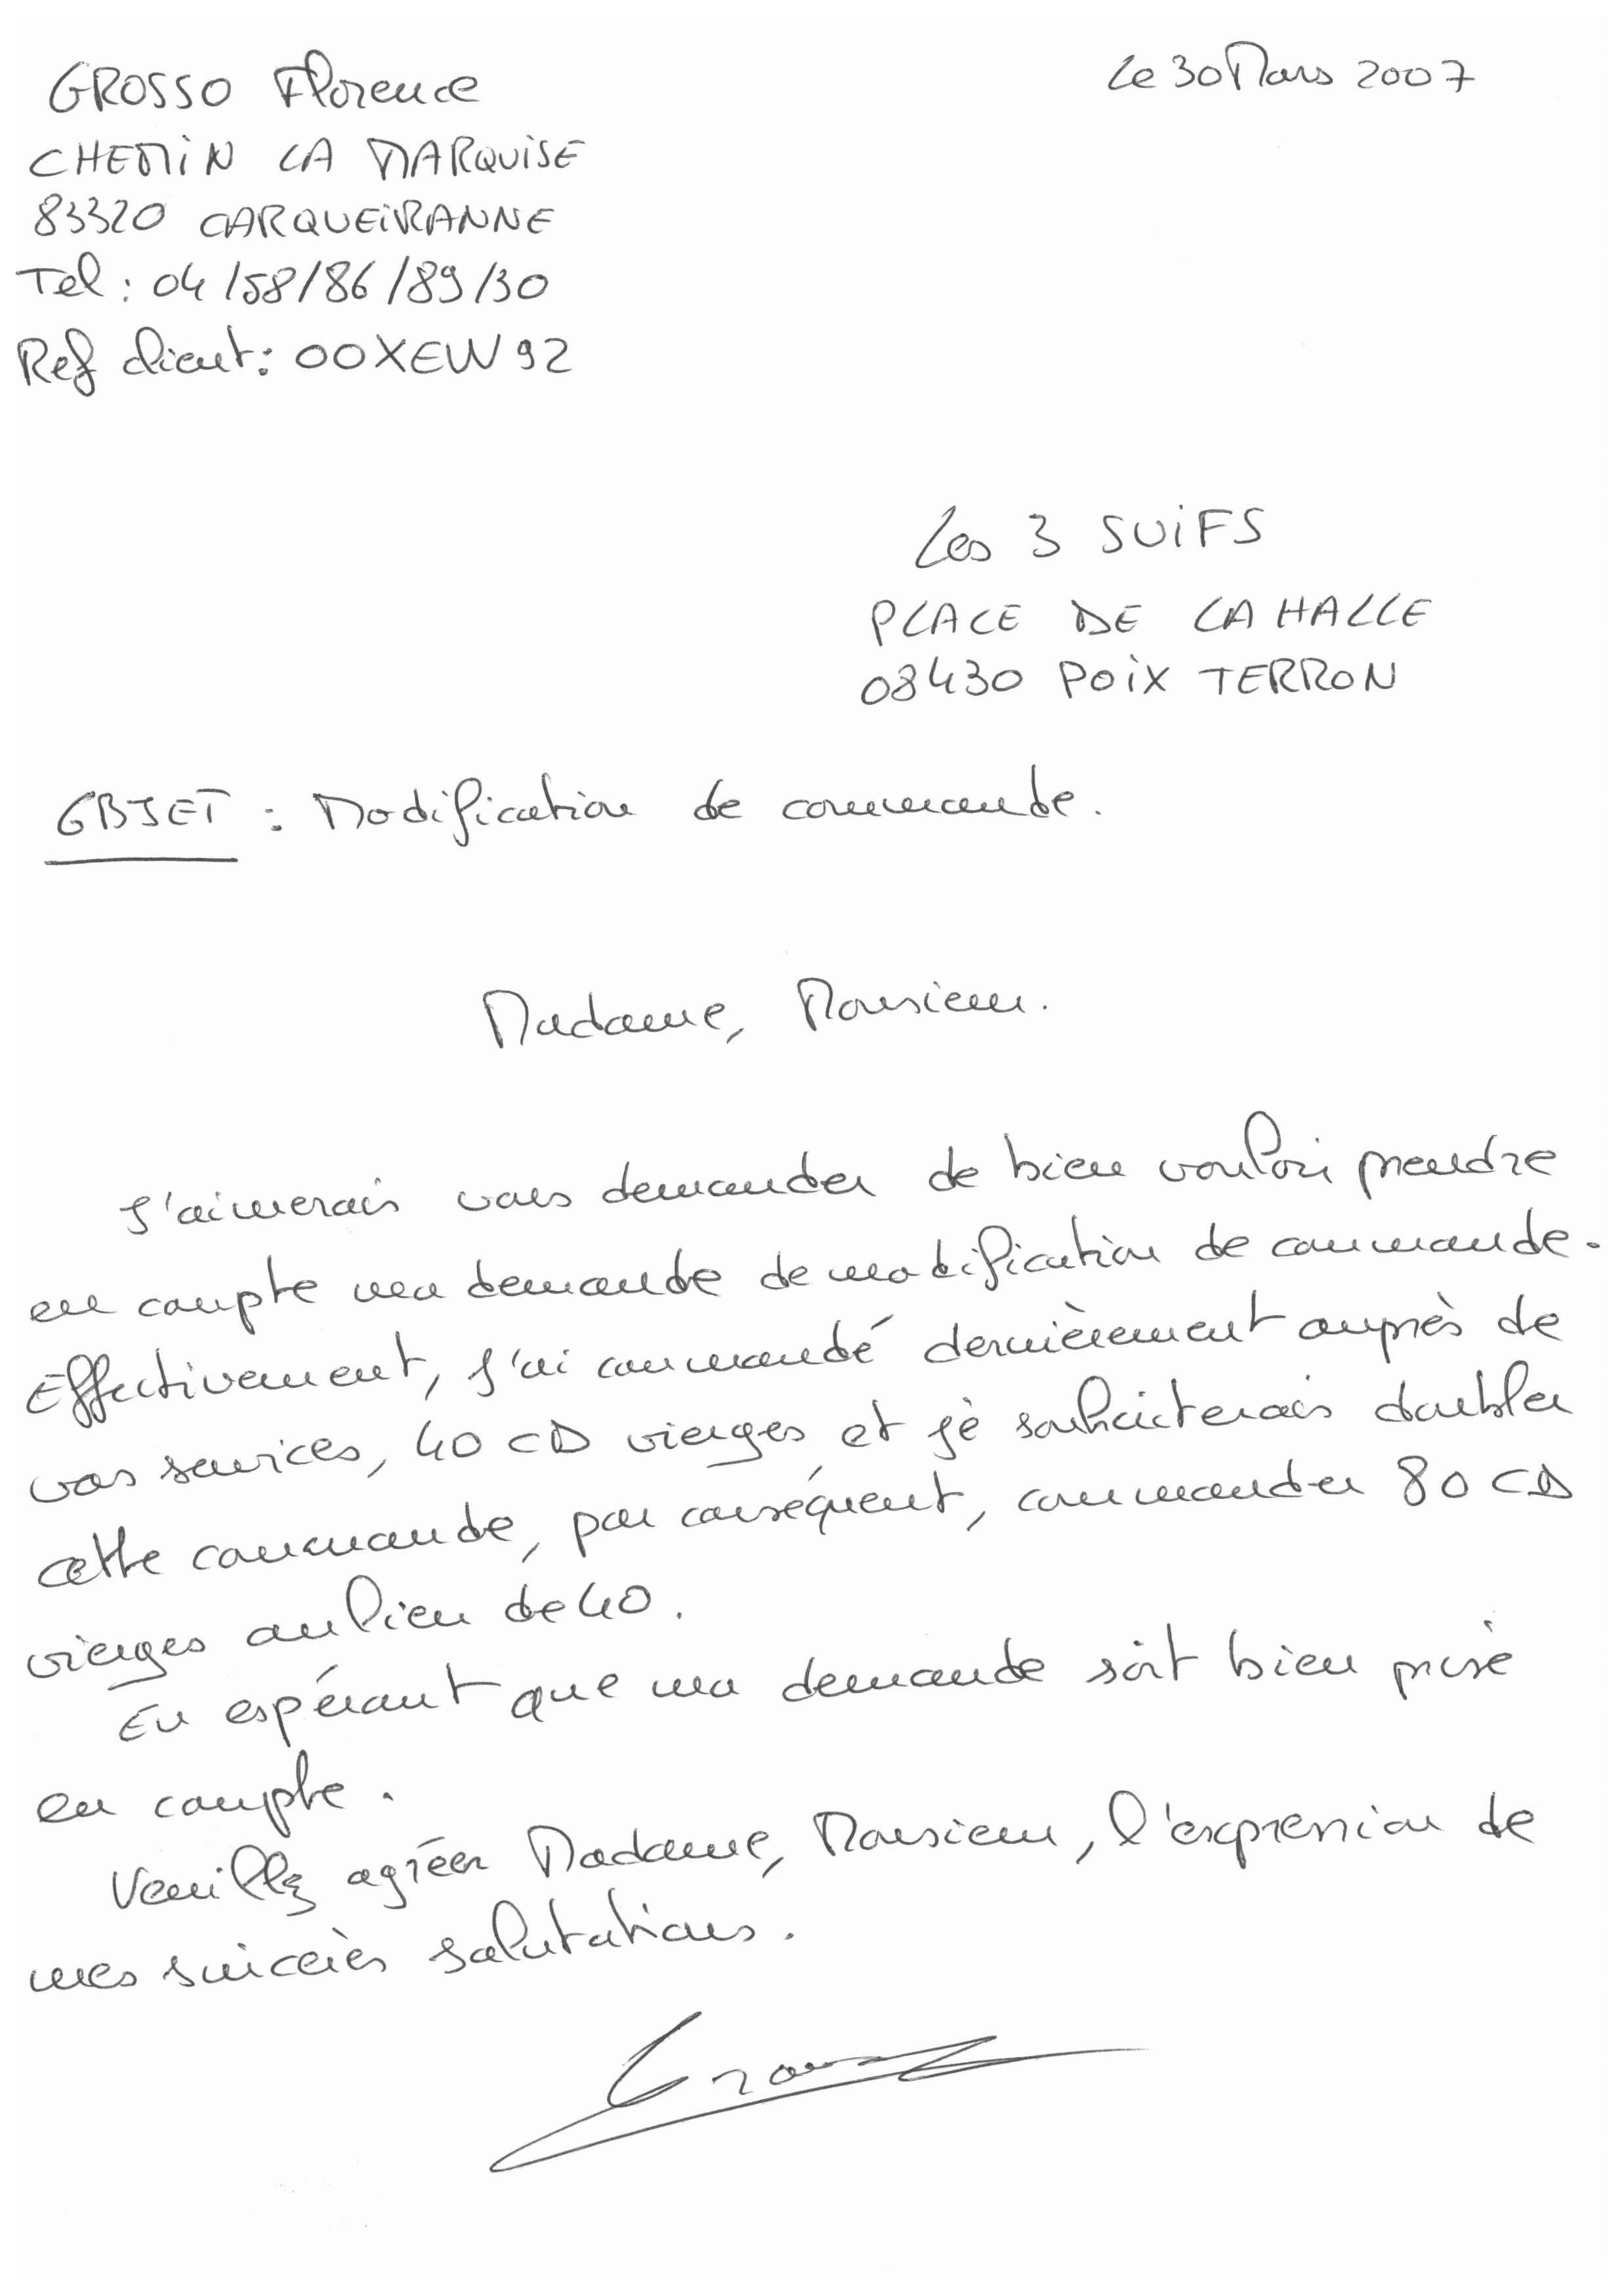 GROSSO Florence
Le 30 Mars 2007
CHEMIN LA MARQUISE
83320 CARQUEIRANNE
Tel : 04/58/86/89/30
Ref client : 00XEW92
Les 3 SUIFS
PLACE DE LA HALLE
08430 POIX TERRON
OBJET : Modification de commande.
Madame, Monsieur.
J'aimerais vous demander de bien vouloir prendre
en compte ma demande de modification de commande.
Effectivement, j'ai commandé dernièrement auprès de
vos services, 40 CD vierges et je souhaiterais doubler
cette commande, par conséquent, commander 80 CD
vierges au lieu de 40.
En espérant que ma demande soit bien prise
en compte.
Veuillez agréer Madame, Monsieur, l'expression de
mes sincères salutations.